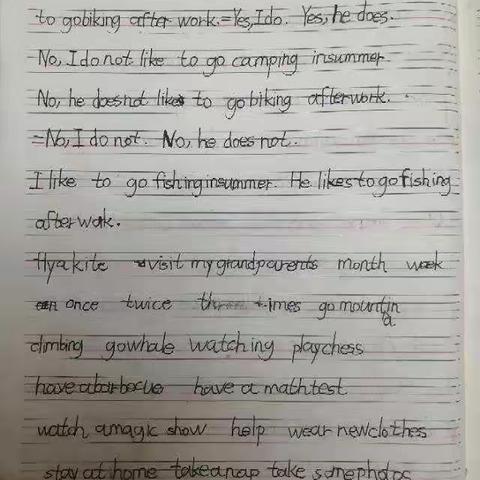 to gobiking after work.=Yes,I do. Yes, he does.
No, I do not like to go camping insummer.
No, he doesnot likes to gobiking afterwork.
=No, I do not. No, he does not.
I like to go fishinginsummer. He likestogofishing
afterwok.
flyakite visit mygrandparents month week
once twice three times gomountin
a
climbing gowhale watching playchess
haveabarbecue have a mathtest
watch amagic show help wear newclothes
stay at home takeanap take somephotos